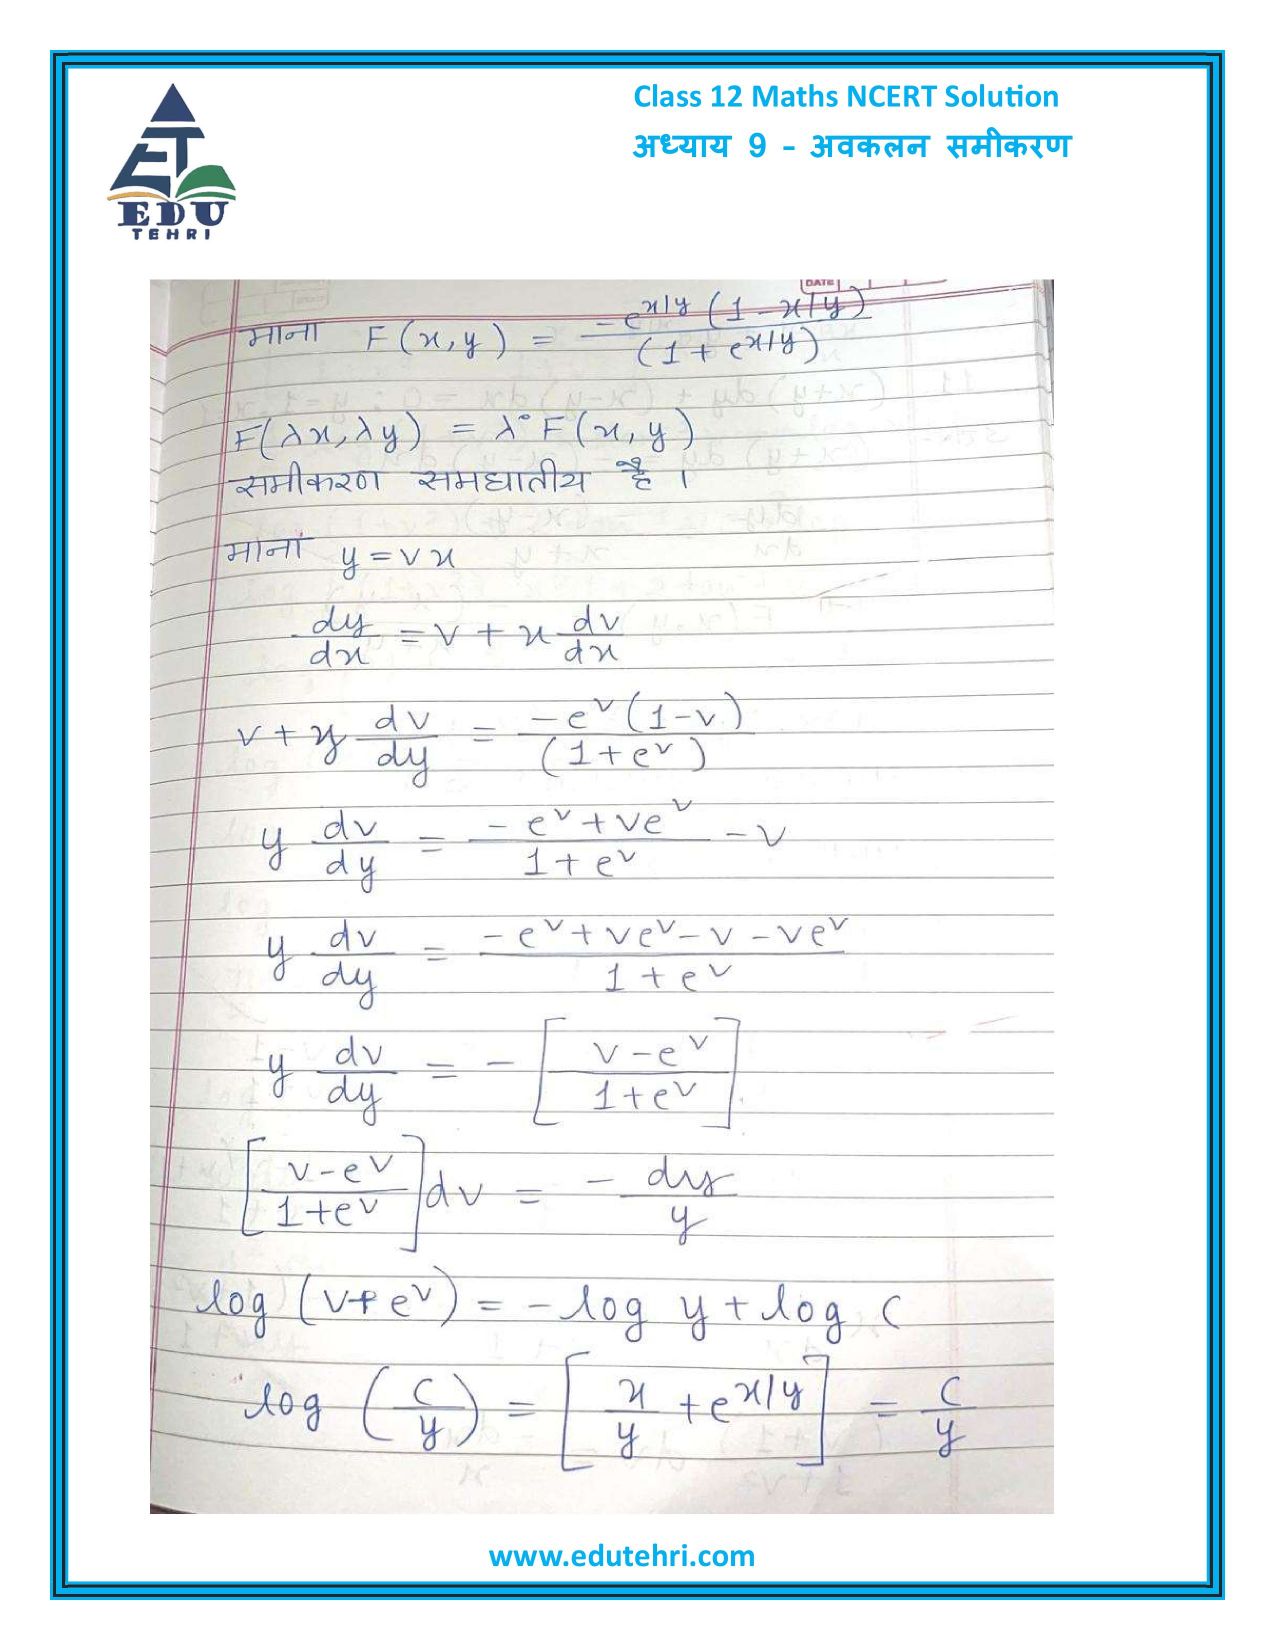 Class 12 Maths NCERT Solution
अध्याय 9 – अवकलन समीकरण
EDU
TEHRI
DATE
माना F(x,y) = -e^{x/y} (1 - x/y) / (1 + e^{x/y})
F(λx, λy) = λ° F(x, y)
समीकरण समघातीय है ।
माना y = vx
dy/dx = v + x dv/dx
v + y dv/dy = -e^v (1-v) / (1+e^v)
y dv/dy = (-e^v + ve^v) / (1+e^v) - v
y dv/dy = (-e^v + ve^v - v - ve^v) / (1+e^v)
y dv/dy = - [ (v - e^v) / (1+e^v) ]
[ (v - e^v) / (1+e^v) ] dv = - dy/y
log (v + e^v) = - log y + log c
log (c/y) = [ x/y + e^{x/y} ] = c/y
www.edutehri.com